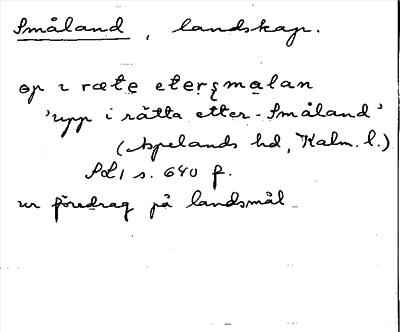 Småland, landskap.
op ı ræte eterşmalan
'upp i rätta etter-Småland'
(Aspelands hd, Kalm. l.)
SL1 s. 640 f.
ur föredrag på landsmål